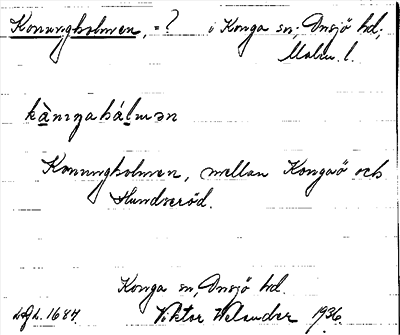 Konungholmen, =? i Konga sn; Onsjö hd,
Malm. l.
kànıŋahálmən
Konungholmen, mellan Kongaö och
Hundseröd.
Konga sn, Onsjö hd.
1684. Viktor Welander 1936.